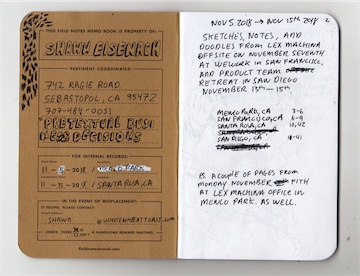 THIS FIELD NOTES MEMO BOOK IS PROPERTY OF:
SHAWN EISENACH
PERTINENT COORDINATES:
742 RAGLE ROAD
SEBASTOPOL, CA 95472
707-484-0051
PRETEXTUAL BUSI
NESS DECISIONS
FOR INTERNAL RECORDS:
11 - 5 - 2018 / MENLO PARK
11 - 15 - 2018 / SANTA ROSA, CA
IN THE EVENT OF MISPLACEMENT:
IF FOUND, PLEASE CONTACT:
SHAWN @ WHOLEWHEATTOAST.COM
A HANDSOME REWARD WAITING.
fieldnotesbrand.com
NOV 5 2018 → NOV 15TH 2018 2
SKETCHES, NOTES, AND
DOODLES FROM LEX MACHINA
OFFSITE ON NOVEMBER SEVENTH
AT WEWORK IN SAN FRANCISCO,
AND PRODUCT TEAM
RETREAT IN SAN DIEGO
NOVEMBER 13TH - 15TH.
MENLO PARK, CA 3-6
SAN FRANCISCO, CA 6-9
SANTA ROSA, CA 10,42
SAN DIEGO, CA 11-41
PS. A COUPLE OF PAGES FROM
MONDAY NOVEMBER FIFTH
AT LEX MACHINA OFFICE IN
MENLO PARK. AS WELL.